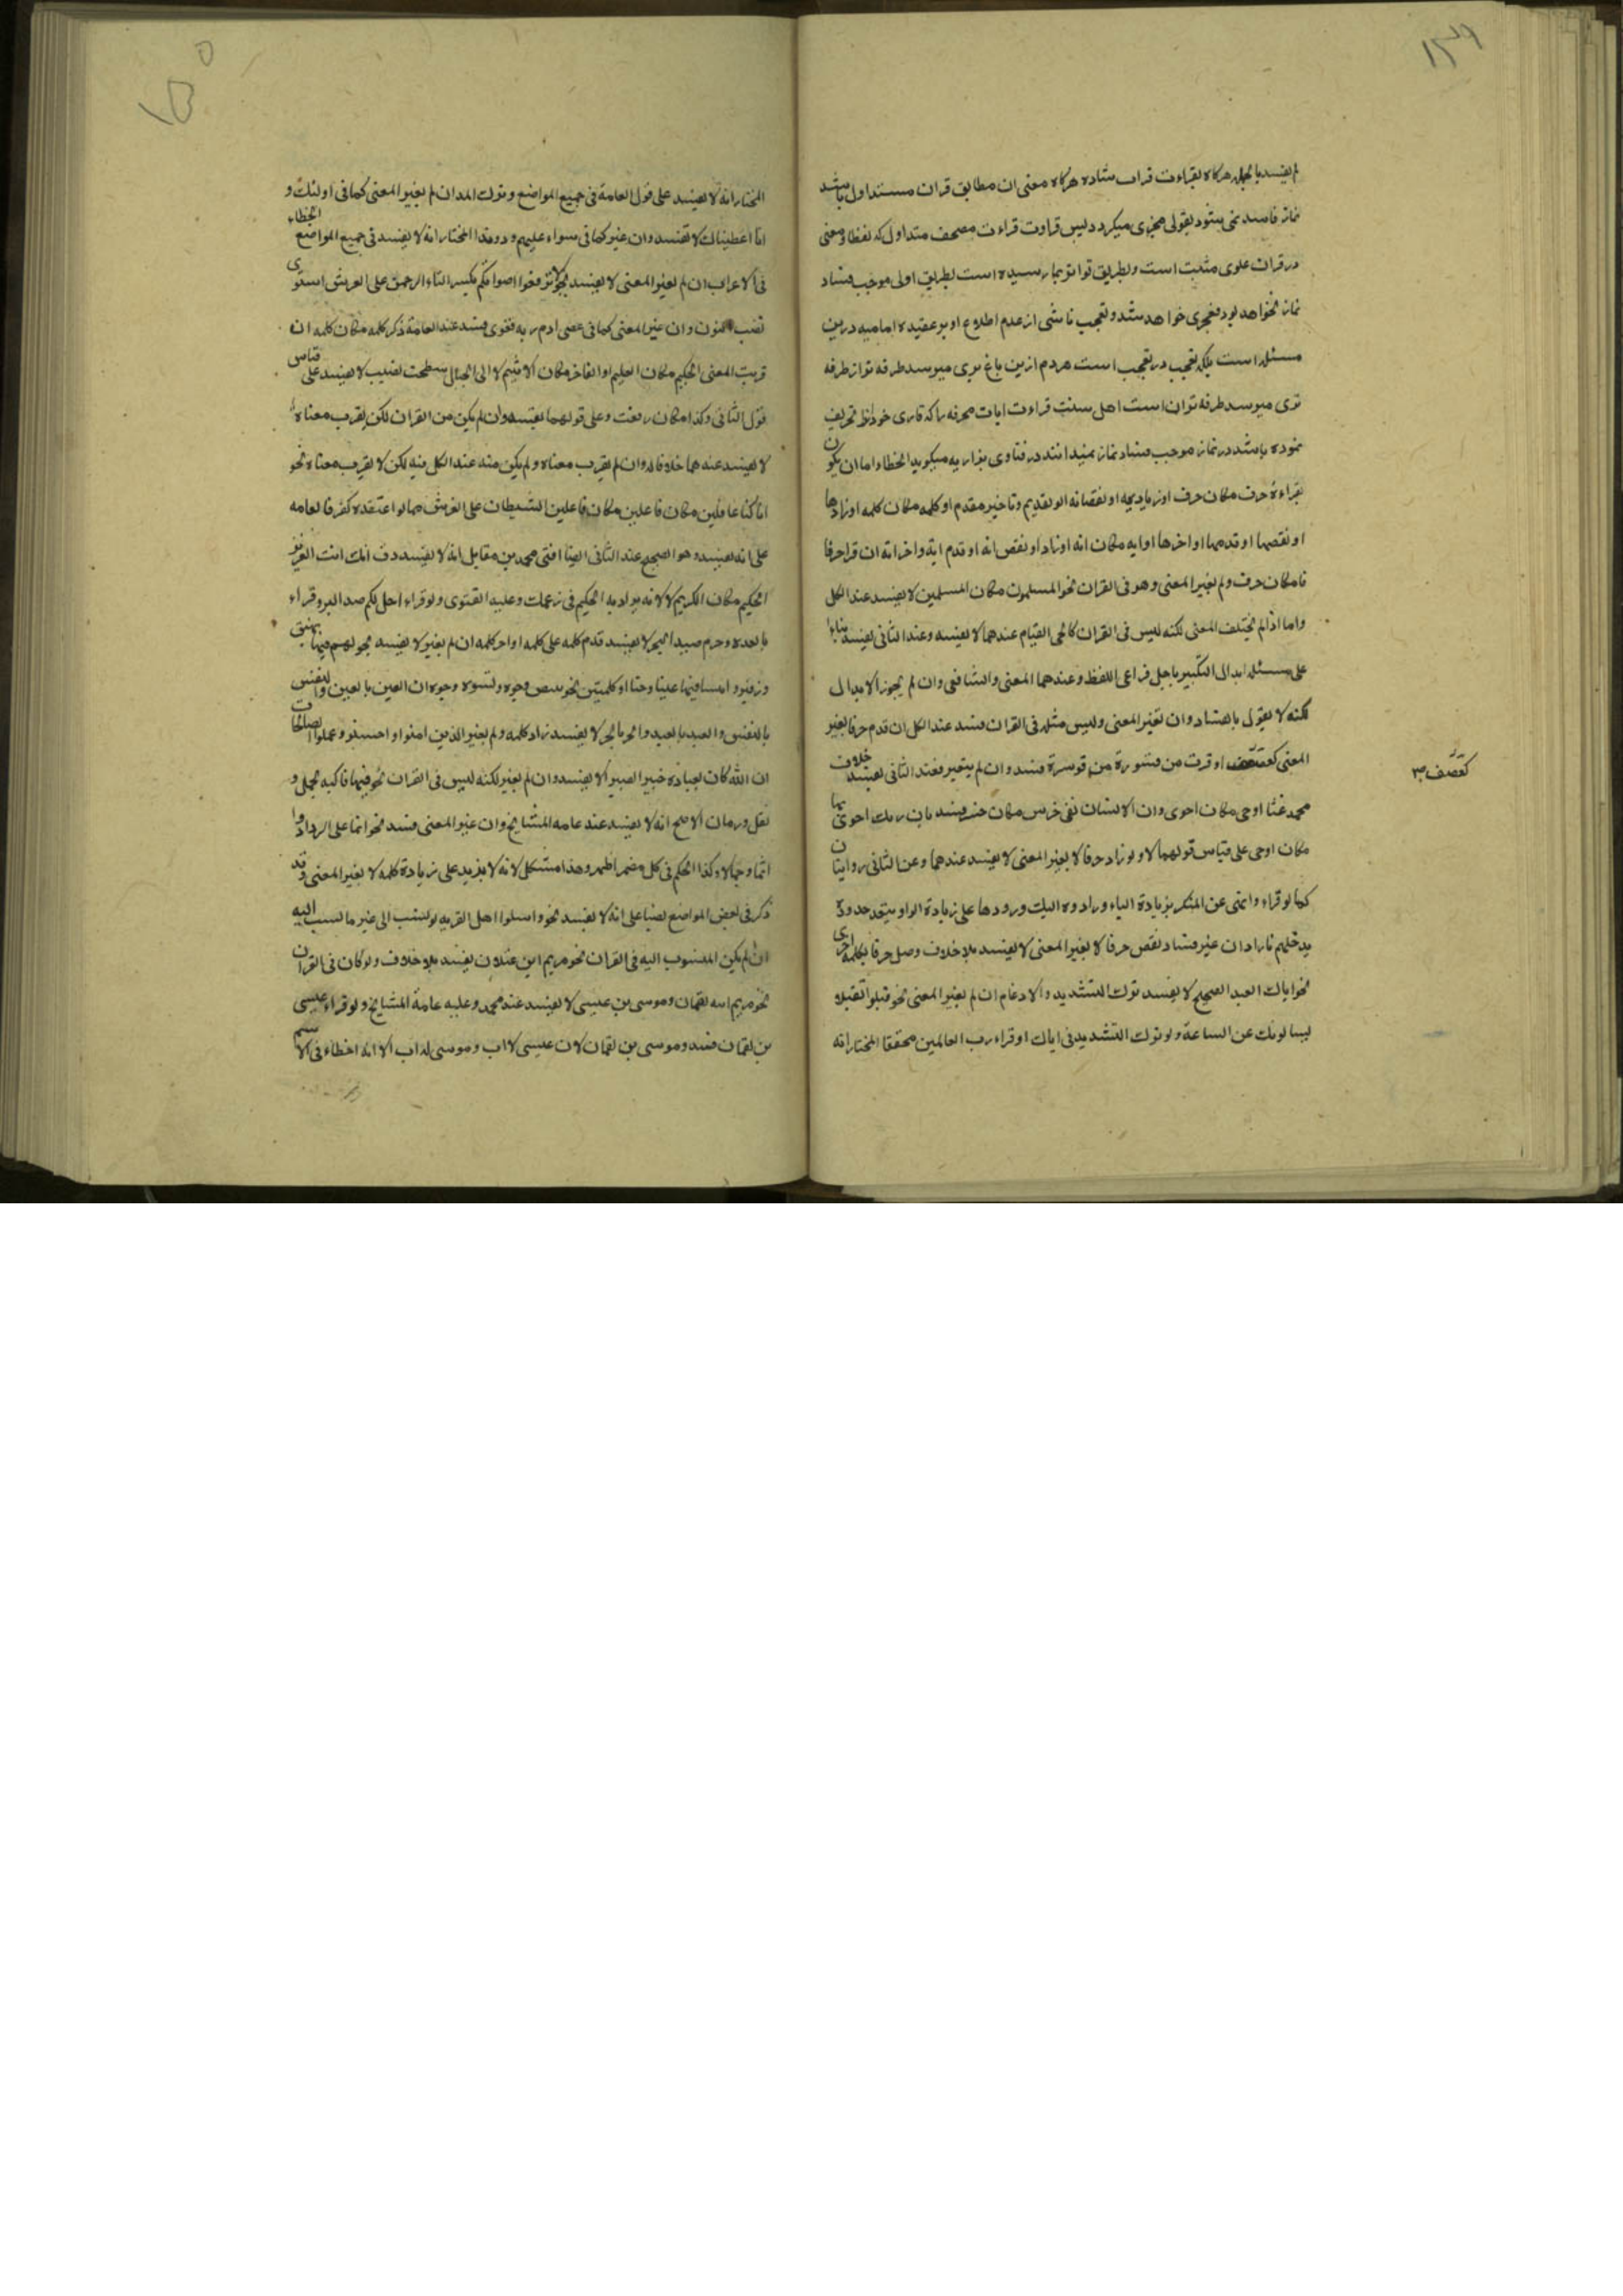 ۱۴۹
لم یفسد بالجمله هرکاه بقراءت قراب شاده هرکاه معنی ان مطابق قران مستداول باشد
نماز فاسد نمی شود بقولی مجزی میکردد لیس قراوت قراءت مصحف متداول که لفظا و معنی
در قران علوی مثبت است و بطریق تواتر بما رسیده است بطریق اولی موجب فساد
نماز نخواهد بود فمجزی خواهد شد و تعجب ناشی از عدم اطلاع او بر عقیده امامیه درین
مسئله است بلکه تعجب در تعجب است هر دم ازین باغ بری میرسد طرفه تر از طرفه
تری میرسد طرفه تر ان است اهل سنت قراءت ایات محرفه را که قاری خود انرا تحریف
نموده باشد در نماز موجب فساد نماز نمیدانند در فتاوی بزازیه میکوید الخطاء اما ان یکون
بقراءة حرف مکان حرف او زیادته او نقصانه او بتقدیم و تاخیر مقدم او کلمه مکان کلمه او زادها
او نقصها او قدمها او اخرها او ایه مکان انه او زاد او نقص انه او قدم ایة و اخر اتة ان قرا حرفا
فا مکان حرف و لم یغیر المعنی و هو فی القران نحو المسلمون مکان المسلمین لا یفسد عند الکل
و اما اذا لم یختلف المعنی لکنه لیس فی القران کالحی القیام عندهما لا یفسد و عند الثانی یفسد بناء
علی مسئله ابدال التکبیر باجل فراعی اللفظ و عندهما المعنی و الشافعی و ان لم یجوز الابدال
لکنه لا یقول بالفساد و ان تغیر المعنی و لیس مثله فی القران فسد عند الکل ان قدم حرفا یغیر
المعنی کعقصف او قرت من فسورة من قوسرة فسد و ان لم یتغیر فعند الثانی یفسد خلاف
کعصف ص
محمد غثا اوحی مکان احوی و ان الانسان لفی خرس مکان خسر فسد بان ربک احوی لها
مکان اوحی علی قیاس قولهما لا و لو زاد حرفا لا یغیر المعنی لا یفسد عندهما و عن الثانی روایتان
کما لو قراء و انهی عن المنکر بزیادة الیاء و رادوه الیک و رودها علی زیادة الواو یتعد حدوده
یدخلهم نارا دان غیر فساد نقص حرفا لا یغیر المعنی لا یفسد بلا خلاف وصل حرفا بکلمة اخری
نحو ایاک العبد الصحیح لا یفسد ترک التشدید و الادغام ان لم یغیر المعنی نحو قتلوا تقتیلا
یسالونک عن الساعة و لو ترک التشدید فی ایاک او قراء رب العالمین مخففا المختار انه
۱۵۰
المختار انه لا یفسد علی قول العامة فی جمیع المواضع و ترک المد ان لم یغیر المعنی کما فی اولئک و
انا اعطیناک لا تفسد و ان غیر کما فی سواء علیهم و دو هذا المختار انه لا یفسد فی جمیع المواضع الخطاء
فی الاعراب ان لم یغیر المعنی لا یفسد نحو لا ترفعوا اصواتکم بکسر التاء الرحمن علی العرش استوی
نصب النون و ان غیر المعنی کما فی عصی ادم ربه فغوی فسد عند العامة ذکر کلمه مکان کلمه ان
قربت المعنی الحکیم مکان العلیم او الفاخر مکان الاثیم لا الی الجبال سطحت نصیب لا یفسد علی قیاس
قول الثانی و کذا مکان رفعت و علی قولهما یفسد و ان لم یکن من القران لکن یقرب معناه
لا یفسد عندهما خلافا له و ان لم یقرب معناه و لم یکن منه عند الکل فیه لکن لا یقرب معناه نحو
انا کنا غافلین مکان فاعلین مکان فاعلین الشیطان علی العرش مما لو اعتقده کفر فالعامه
علی انه یفسد و هو الصحیح عند الثانی ایضا افتی محمد بن مقاتل انه لا یفسد دف انک انت العزیز
الحکیم مکان الکریم لا لانه یراد به الحکیم فی زعمک و علیه الفتوی و لو قراء احل لکم صید البر و قراء
بالعده و حرم صید البحر لا یفسد قدم کلمه علی کلمه او اخر کلمه ان لم یغیر لا یفسد نحو لهم فیها شهیق
و زفیر و انبتنا فیها عنبا و حبا او کلمتین نحو تبیض وجوه و تسود وجوه ان العین بالعین و النفس
بالنفس و العبد بالعبد و الحر بالحر لا یفسد زاد کلمه و لم یغیر الذین امنوا و احسنوا و عملوا الصالحات
ان الله کان بعباده خبیرا بصیرا لا یفسد و ان لم یغیر لکنه لیس فی القران نحو فیها فاکهه نخل و
نفل و رمان الاصح انه لا یفسد عند عامه المشایخ و ان غیر المعنی فسد نحو انما علی ازدادوا
اثما و جمالا و کذا الحکم فی کل مضمر اظهر و هذا مشکل لانه لا یزید علی زیادة کلمه لا یغیر المعنی و قد
ذکر فی بعض المواضع نصبا علی انه لا یفسد نحو و اسلوا اهل القریه لو نسب الی غیر ما نسب الیه
ان لم یکن المنسوب الیه فی القران نحو مریم ابن غیلان یفسد بلا خلاف و لو کان فی القران
نحو مریم ابنه لقمان و موسی بن عیسی لا یفسد عند محمد و علیه عامة المشایخ و لو قراء عیسی
بن لقمان فسد و موسی بن لقمان لا لان عیسی لا اب و موسی له اب الا انه اخطاء فی الاسم